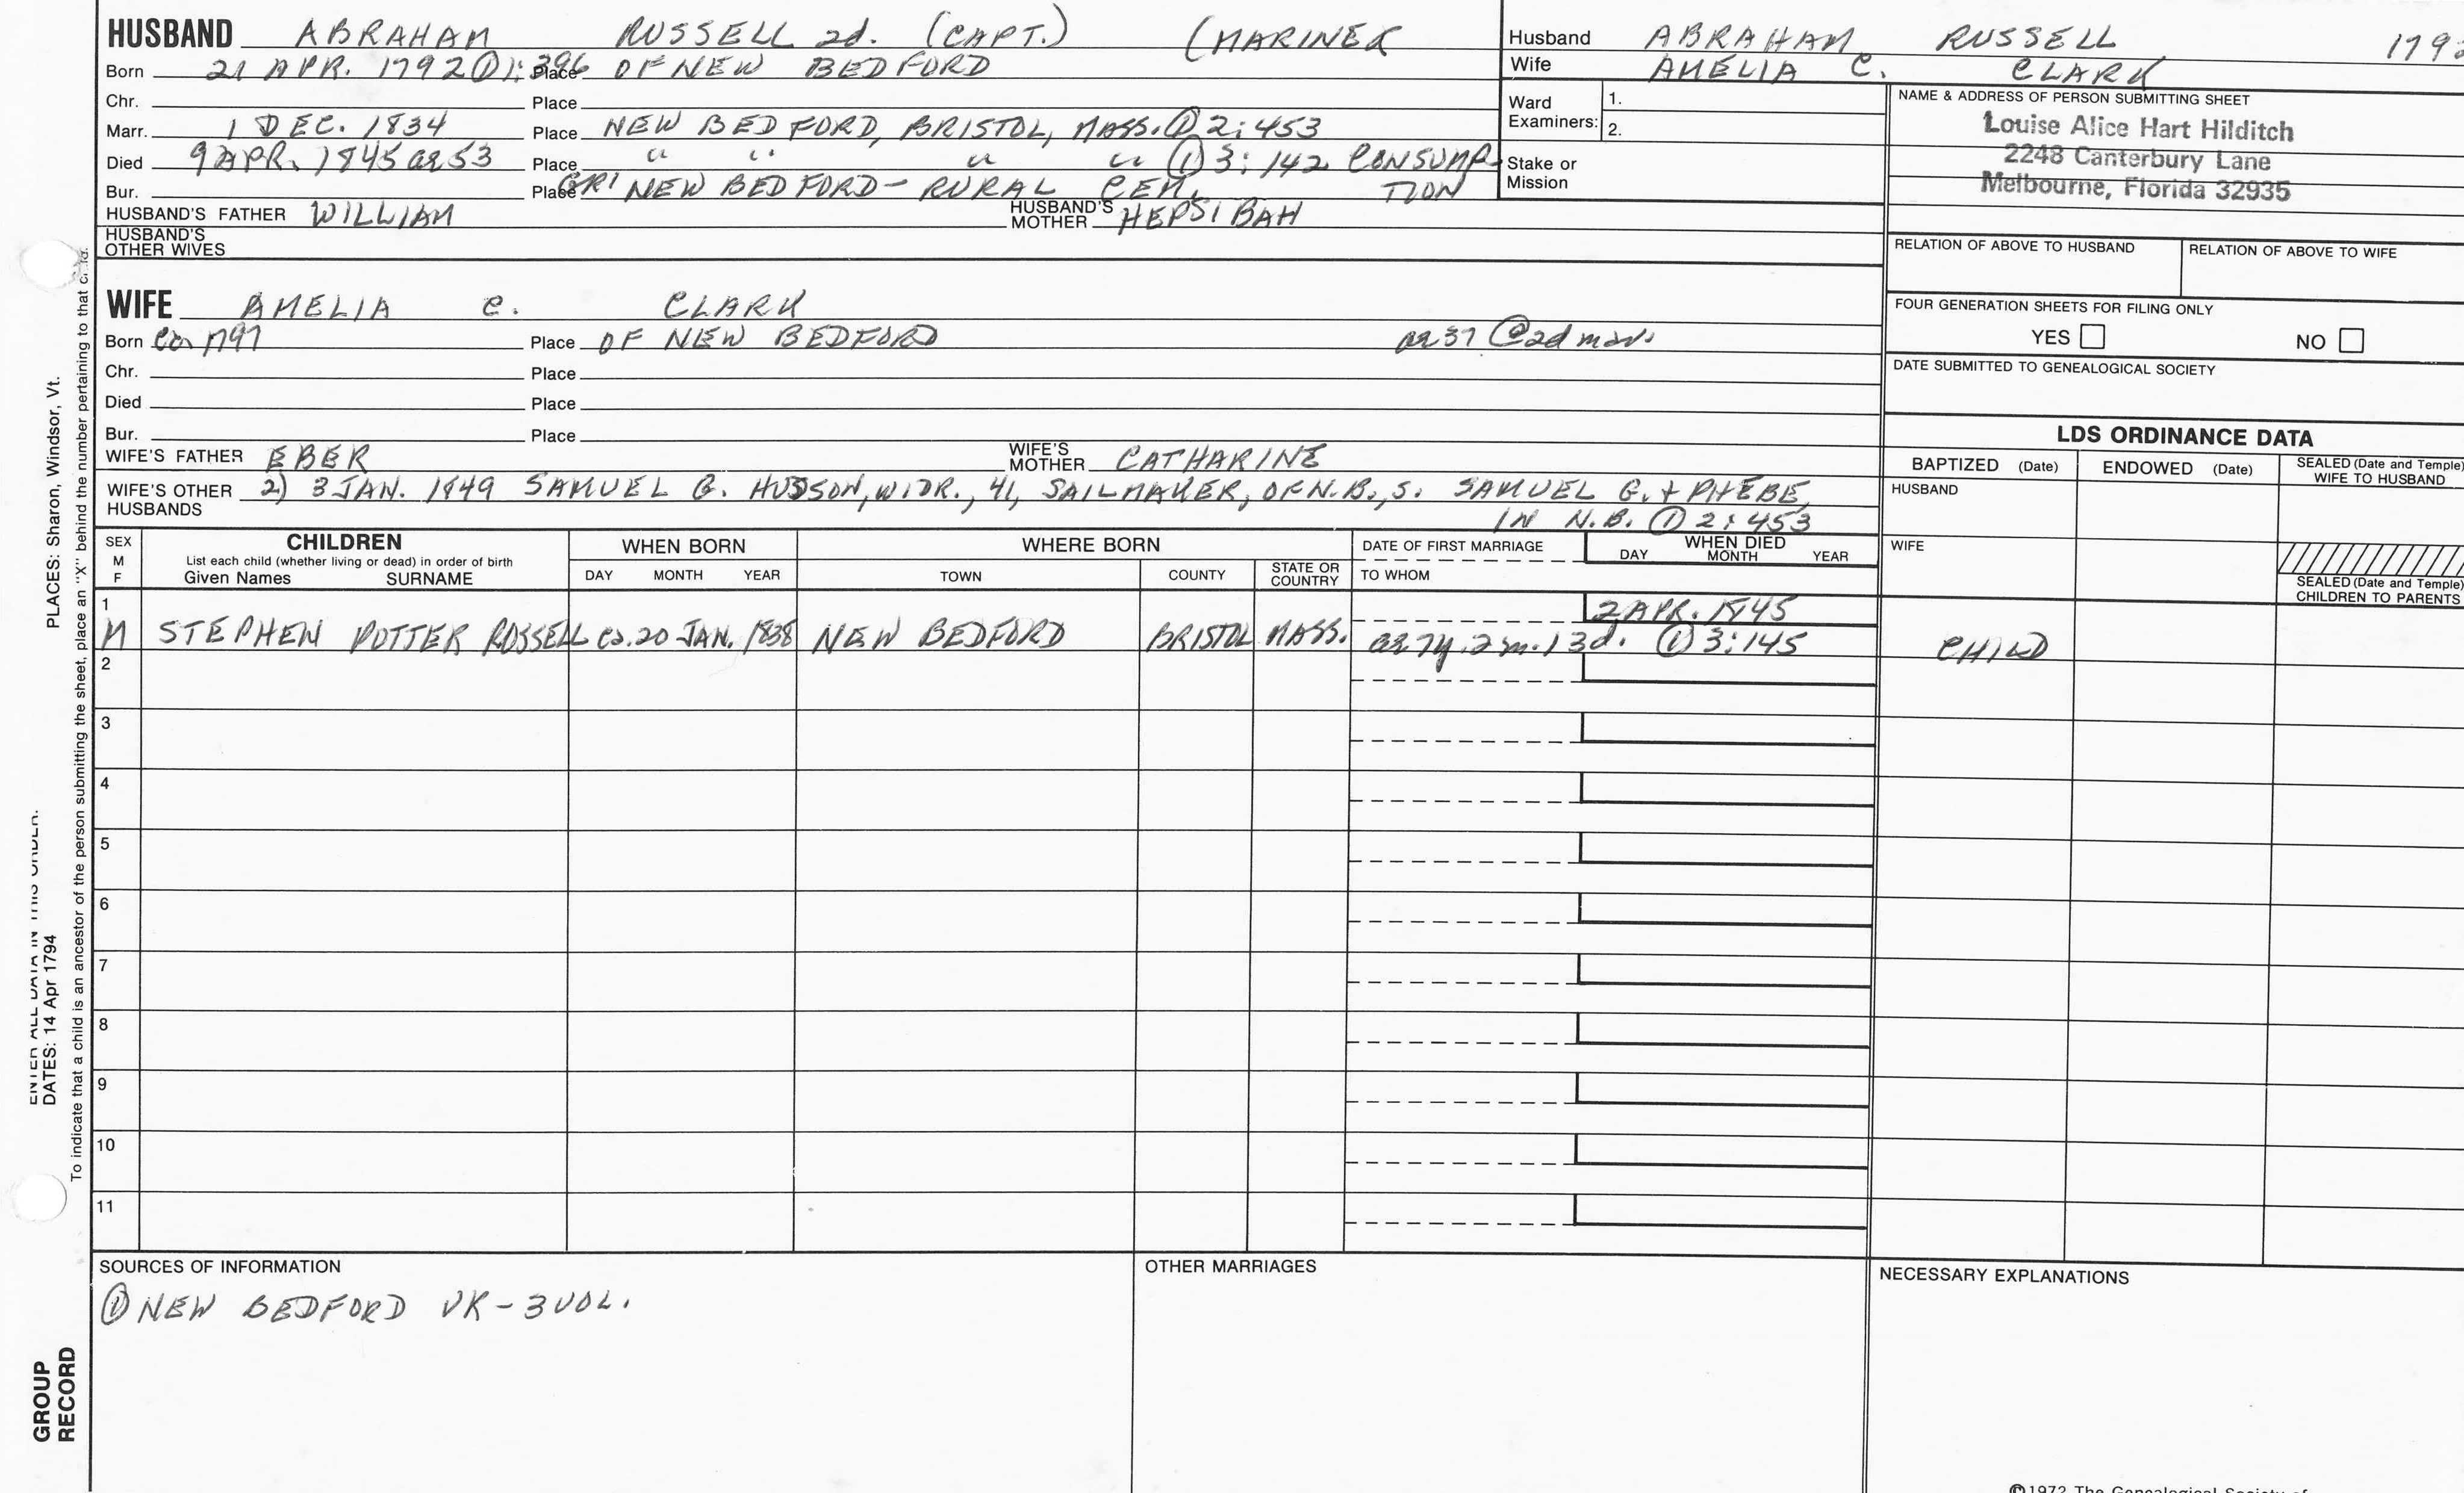 HUSBAND ABRAHAM RUSSELL 2d. (CAPT.) (MARINER
Born 21 APR. 1792 ① 1:396 Place OF NEW BEDFORD
Chr. Place
Marr. 1 DEC. 1834 Place NEW BEDFORD, BRISTOL, MASS. ① 2:453
Died 9 APR. 1845 ae 53 Place " " " " ① 3:142 CONSUMP-
Bur. Place GR1 NEW BEDFORD - RURAL CEM. TION
HUSBAND'S FATHER WILLIAM HUSBAND'S MOTHER HEPSIBAH
HUSBAND'S OTHER WIVES
Husband ABRAHAM RUSSELL 1792
Wife AMELIA C. CLARK
Ward Examiners: 1.
2.
Stake or Mission
NAME & ADDRESS OF PERSON SUBMITTING SHEET
Louise Alice Hart Hilditch
2248 Canterbury Lane
Melbourne, Florida 32935
RELATION OF ABOVE TO HUSBAND RELATION OF ABOVE TO WIFE
FOUR GENERATION SHEETS FOR FILING ONLY
YES NO
DATE SUBMITTED TO GENEALOGICAL SOCIETY
WIFE AMELIA C. CLARK
Born ca 1797 Place OF NEW BEDFORD ae 37 @ 2d marr
Chr. Place
Died Place
Bur. Place
WIFE'S FATHER EBER WIFE'S MOTHER CATHARINE
WIFE'S OTHER HUSBANDS 2) 3 JAN. 1849 SAMUEL G. HUDSON, WIDR., 41, SAILMAKER, OF N.B., S. SAMUEL G. & PHEBE,
IN N.B. ① 2:453
LDS ORDINANCE DATA
BAPTIZED (Date) ENDOWED (Date) SEALED (Date and Temple) WIFE TO HUSBAND
HUSBAND
WIFE
SEALED (Date and Temple) CHILDREN TO PARENTS
SEX M F
CHILDREN
List each child (whether living or dead) in order of birth
Given Names SURNAME
WHEN BORN
DAY MONTH YEAR
WHERE BORN
TOWN COUNTY STATE OR COUNTRY
DATE OF FIRST MARRIAGE
TO WHOM
WHEN DIED
DAY MONTH YEAR
1 2 APR. 1845
M STEPHEN POTTER RUSSELL ca. 20 JAN. 1838 NEW BEDFORD BRISTOL MASS. ae 7y. 2m. 13d. ① 3:145 CHILD
2
3
4
5
6
7
8
9
10
11
SOURCES OF INFORMATION
① NEW BEDFORD VR - 3 VOL.
OTHER MARRIAGES
NECESSARY EXPLANATIONS
©1972 The Genealogical Society of
PLACES: Sharon, Windsor, Vt.
ENTER ALL DATA IN THIS ORDER.
DATES: 14 Apr 1794
To indicate that a child is an ancestor of the person submitting the sheet, place an "X" behind the number pertaining to that child.
GROUP
RECORD